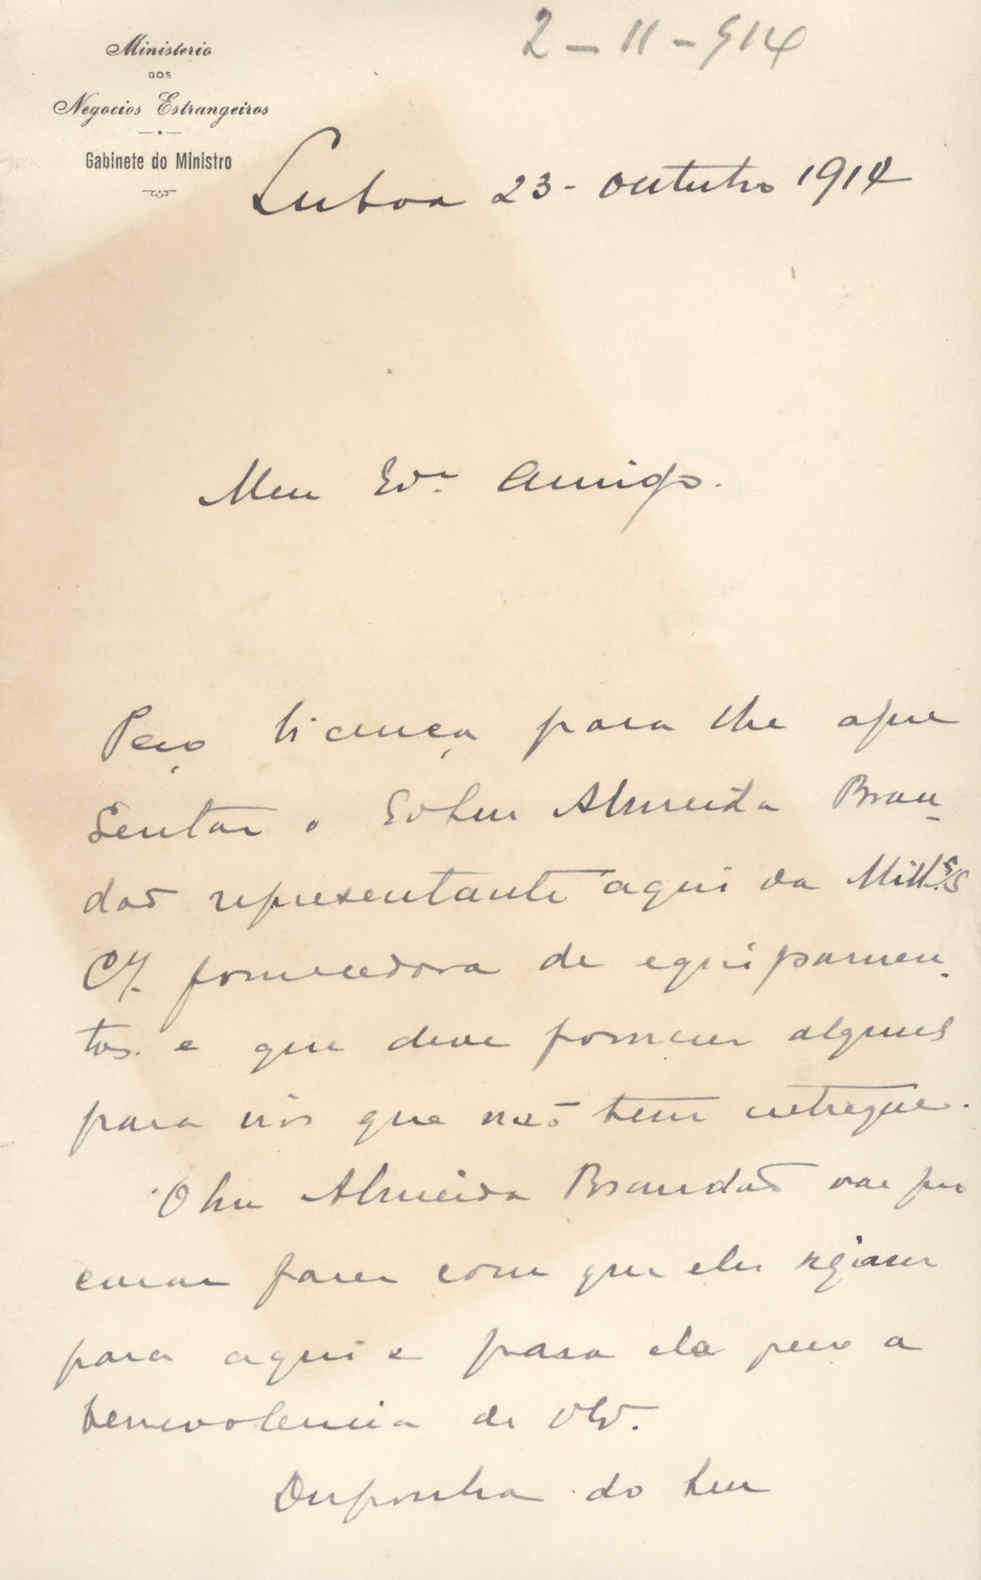 2-11-914
Ministerio
DOS
Negocios Estrangeiros
Gabinete do Ministro
Lisboa 23 - Outubro 1914
Meu Exº. Amigo.
Peço licença para lhe apre
sentar o Almeida Bran-
dão representante aqui da Mills
Cº. fornecedora de equipamen-
tos e que deve fornecer alguns
para nós que não tem entregue.
O Almeida Brandão vae pro
curar fazer com que eles sejam
para aqui e para ela peço a
benevolencia de V. Exª.
Disponha do seu